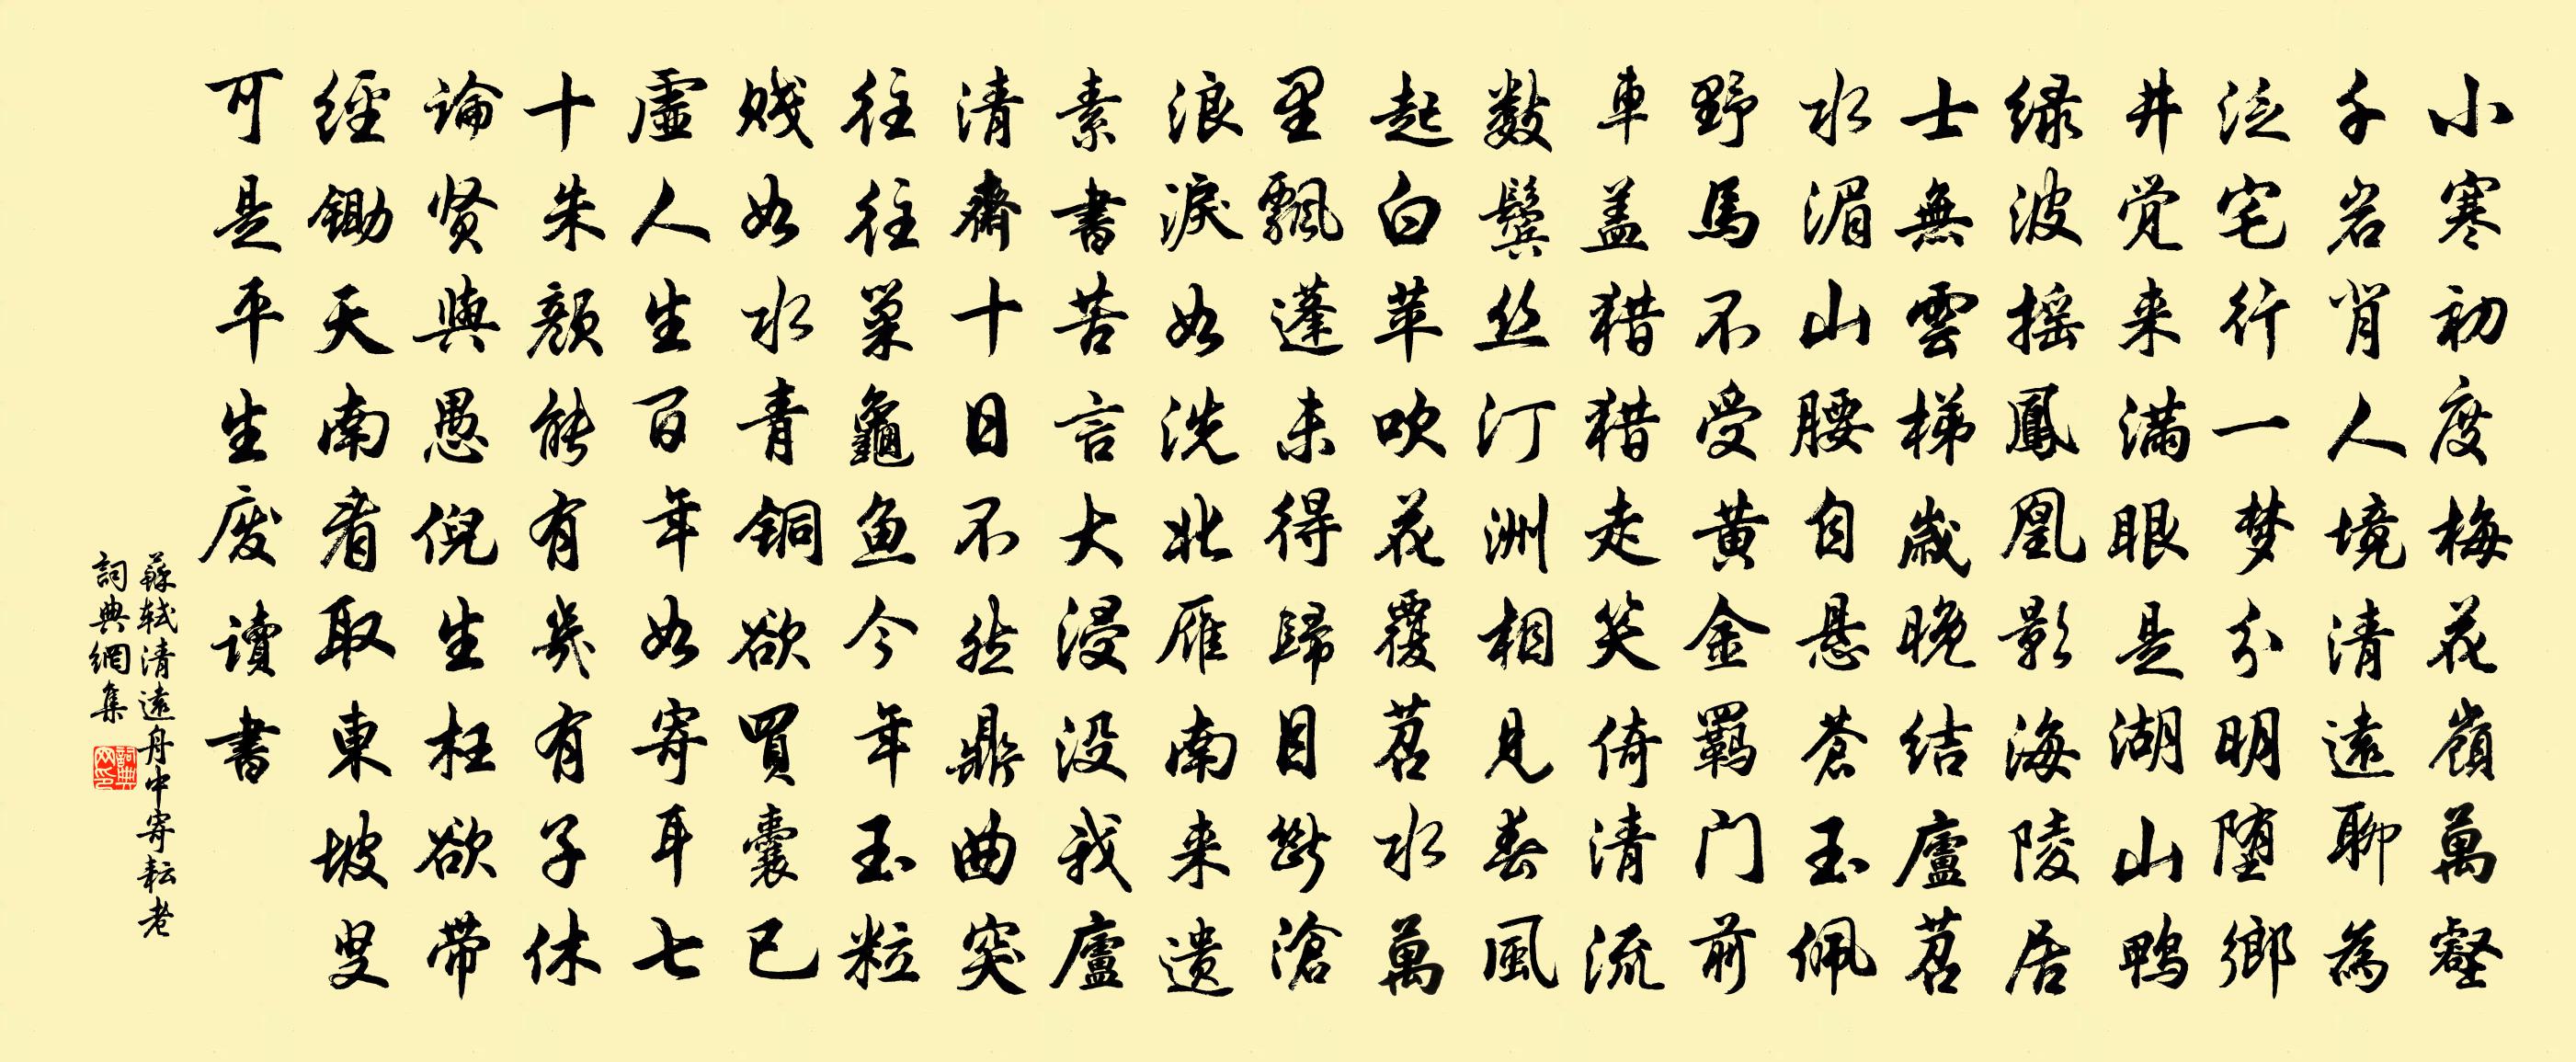 小寒初度梅花嶺萬壑
千岩肖人境清遠聊為
泛宅行一梦分明堕鄉
井觉来滿眼是湖山鸭
绿波摇鳳凰影海陵居
士無雲梯歲晚结廬苕
水湄山腰自悬蒼玉佩
野馬不受黄金羁门前
車盖猎猎走笑倚清流
数鬓丝汀洲相見春風
起白苹吹花覆苕水萬
里飄蓬未得歸目斷滄
浪淚如洗北雁南来遗
素書苦言大浸没我廬
清齋十日不然鼎曲突
往往巢龜鱼今年玉粒
贱如水青铜欲買囊已
虚人生百年如寄耳七
十朱颜能有幾有子休
论贤與愚倪生枉欲带
經锄天南看取東坡叟
可是平生废读書
蘇轼清遠舟中寄耘老
詞典網集